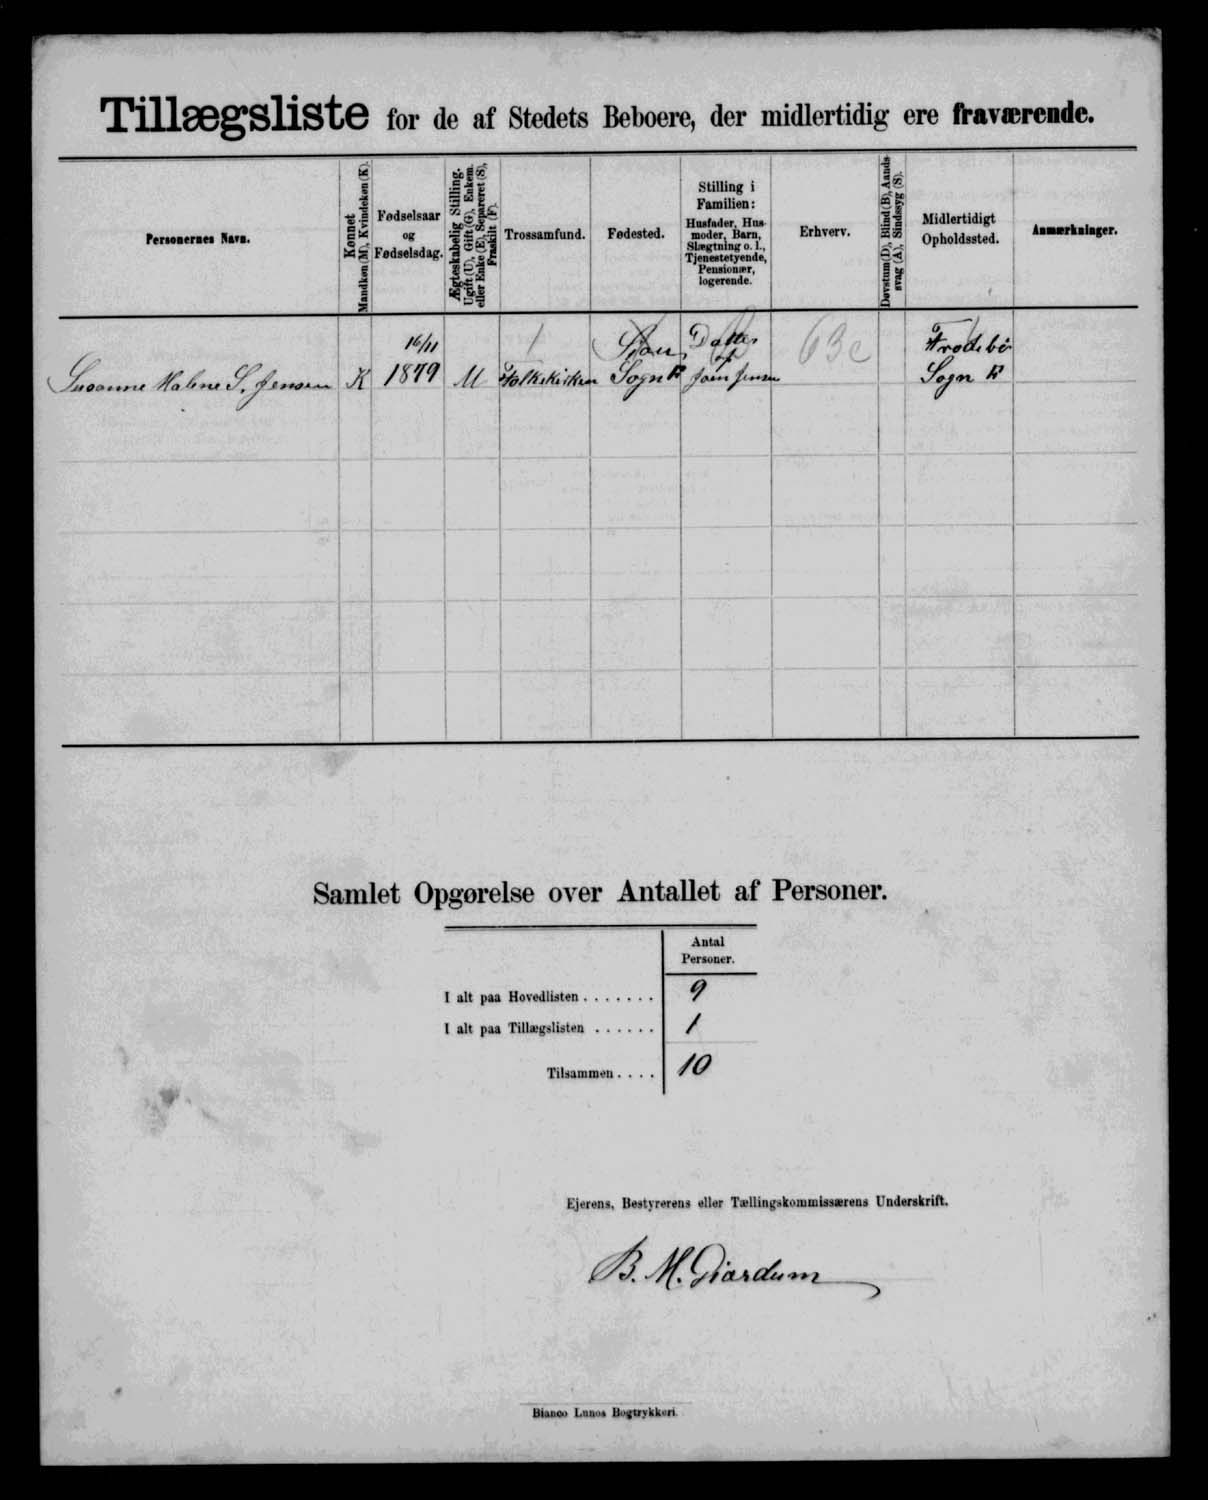 Tillægsliste for de af Stedets Beboere, der midlertidig ere fraværende.
Personernes Navn.
Kønnet
Mandkøn (M), Kvindekøn (K).
Fødselsaar
og
Fødselsdag.
Ægteskabelig Stilling.
Ugift (U), Gift (G), Enkem.
eller Enke (E), Separeret (S),
Fraskilt (F).
Trossamfund.
Fødested.
Stilling i
Familien:
Husfader, Hus-
moder, Barn,
Slægtning o. l.,
Tjenestetyende,
Pensionær,
logerende.
Erhverv.
Døvstum (D), Blind (B), Aands-
svag (A), Sindssyg (S).
Midlertidigt
Opholdssted.
Anmærkninger.
16/11 Datter 63c Frodebø
Susanne Malene S. Jensen K 1879 M Folkekirken Sogn F af Joen Jensen Sogn F
Samlet Opgørelse over Antallet af Personer.
Antal
Personer.
I alt paa Hovedlisten . . . . . . . 9
I alt paa Tillægslisten . . . . . . 1
Tilsammen . . . . 10
Ejerens, Bestyrerens eller Tællingskommissærens Underskrift.
B. M. Diardum
Bianco Lunos Bogtrykkeri.